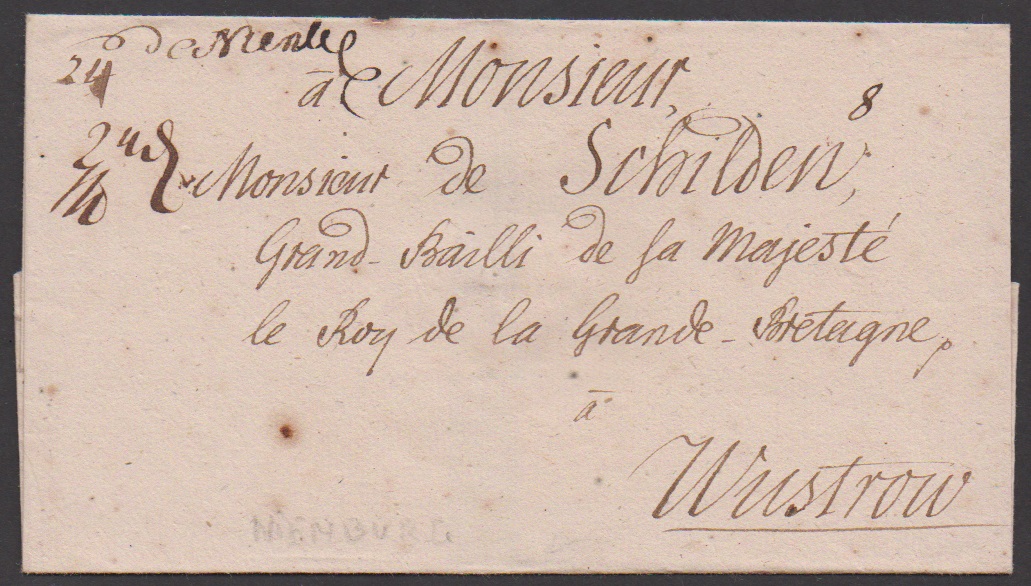 de Nienb
24
à Monsieur,
8
Monsieur de Schilden,
Grand-Bailli de sa Majesté
le Roy de la Grande-Bretagne,
à
Wustrow